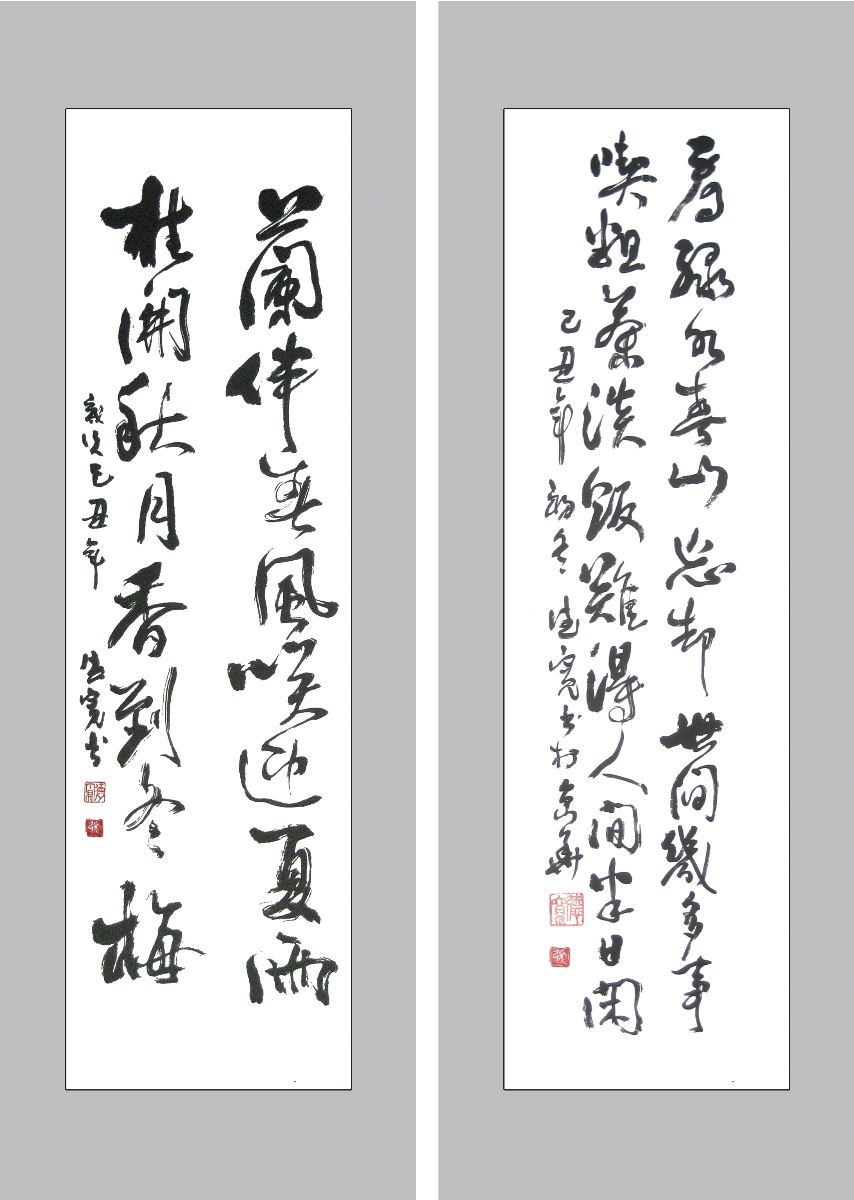 蘭伴春風咲迎夏雨
桂開秋月香到冬梅
歲次己丑年 德寬書
看綠水青山忘却世間幾多事
喫粗茶淡飯難得人間半日閑
己丑年初冬德寬書於京華